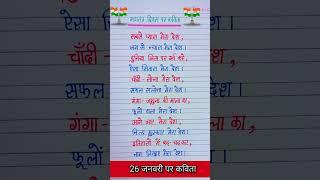 गणतंत्र दिवस पर कविता
सबसे प्यारा मेरा देश,
जग से न्यारा मेरा देश।
दुनिया जिस पर गर्व करे,
ऐसा सितारा मेरा देश।
चाँदी - सोना मेरा देश,
सफल सलोना मेरा देश।
गंगा - जमुना की माला का,
फूलों वाला मेरा देश।
आगे जाए मेरा देश,
मुस्काए मेरा देश।
इतिहासों में बढ़-चढ़ कर,
नाम लिखाए मेरा देश।
26 जनवरी पर कविता